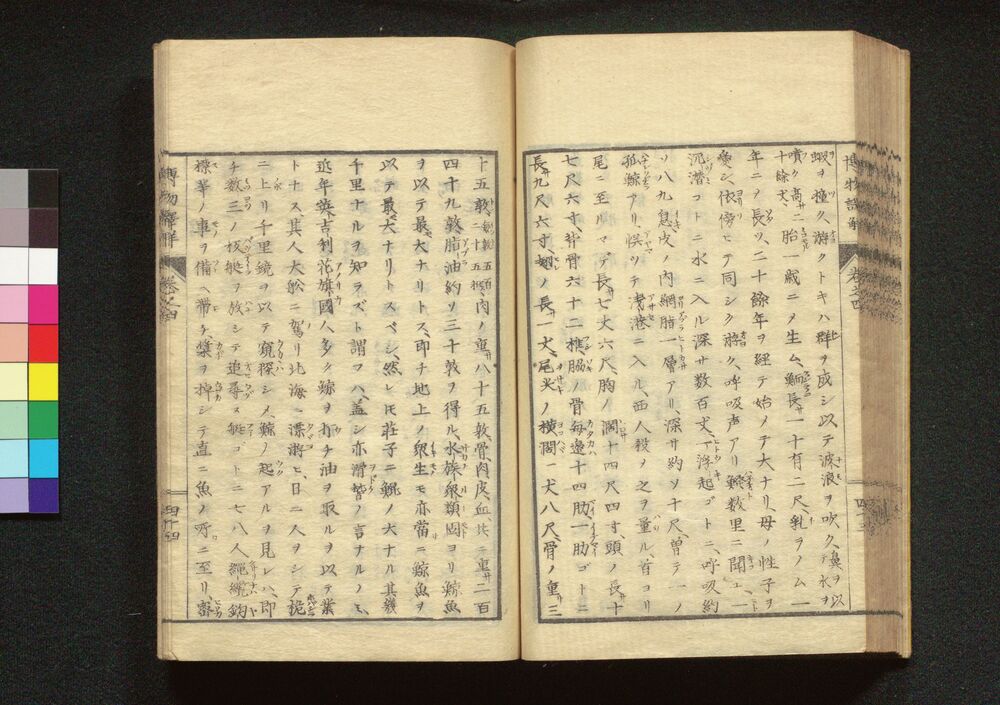 蝦ヲ撞ク、游クトキハ群ヲ成シ以テ波浪ヲ吹ク、鼻ヲ以テ水ヲ
噴ク高サ十餘丈、一胎一歳ニヲ生ム、鯂長サ一十有二尺、乳ヲノム一
年ニヲ長ツ、二十餘年ヲ經テ始メテ大ナリ、母ノ性子ヲ
愛シ、依傍ヒテ同シク游ク、呼吸声アリ數里ニ聞ユ、一
沉潜ゴトニ水ニ入ル深サ数百丈、一浮起ゴトニ、呼吸約
ソ八九息皮ノ内網脂一層アリ、深サ約ソ十尺、曽テ一ノ
孤鯨アリ悮ツテ浅港ニ入ル、西人役メ之ヲ量ル、首ヨリ
尾ニ至ルマデ長サ七丈六尺、胸ノ濶サ十四尺四寸、頭ノ長サ十
七尺六寸、脊骨六十二樵、脇ノ骨毎邊十四肋一肋ゴトニ
長サ九尺六寸、翅ノ長サ一丈、尾尖ノ横濶一丈八尺、骨ノ重サ三
十五敦、毎敦二十五石五斗、肉ノ重サ八十五敦、骨、肉、皮、血共ニ重サ二百
四十九敦、脂油約ソ三十敦ヲ得ル、水族衆類固ヨリ鯨魚
ヲ以テ最モ大ナリトス、即チ地上ノ衆生モ亦當ニ鯨魚ヲ
以テ最モ大ナリトスベシ、然レモ荘子ニ鯤ノ大ナル其幾
千里ナルヲ知ラズト謂フハ、蓋シ亦滑誓ノ言ナルノミ、
近年英吉利花旗國人多ク鯨ヲ打チ油ヲ取ルヲ以テ業
トナス、其人大舩ニ駕リ北海ニ漂游ヒ、日ニ人ヲシテ桅
ニ上リ千里鏡ヲ以テ窺探シメ、鯨ノ起アルヲ見レハ、即
チ数三ノ枝艇ヲ放シテ追尋ス、艇ゴトニ七八人縄纜鈎
標等ノ事ヲ備ヘ帯チ槳ヲ掉シテ直ニ魚ノ所ニ至リ、密